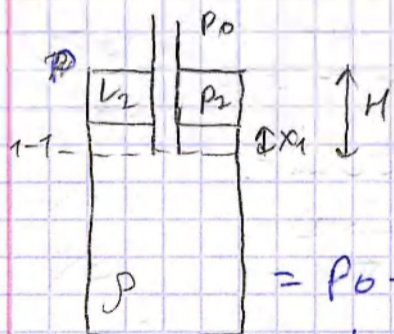 P₀
V₂ P₂ H
1-1 x₁
ρ = P₀